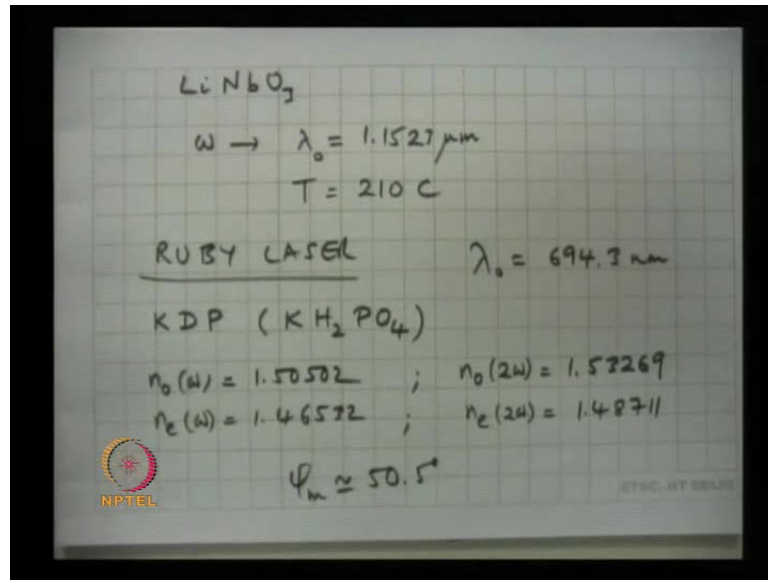 LiNbO3
ω → λ₀ = 1.1527 μm
T = 210 C
RUBY LASER λ₀ = 694.3 nm
KDP (KH₂PO₄)
n₀(ω) = 1.50502 ; n₀(2ω) = 1.53269
nₑ(ω) = 1.46532 ; nₑ(2ω) = 1.48711
φₘ ≃ 50.5°
NPTEL